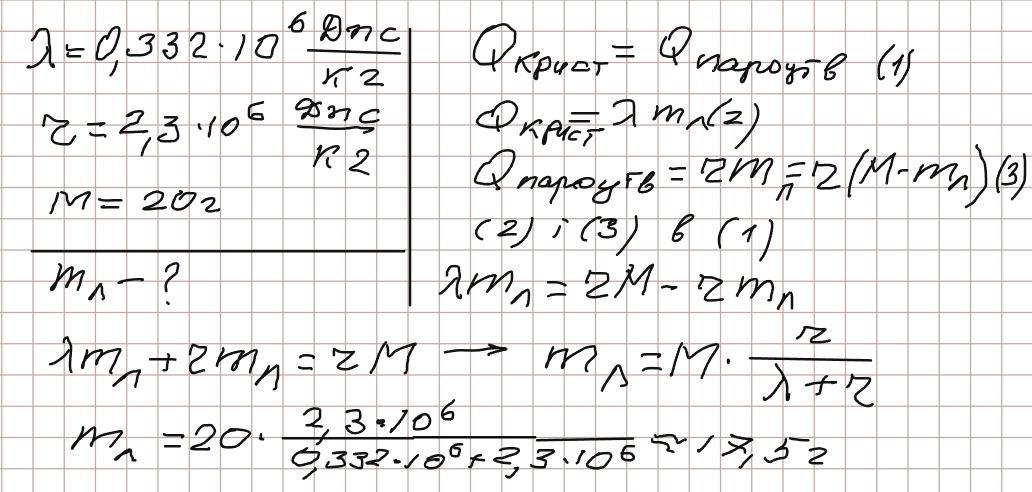 λ = 0,332·10⁶ Дж/кг
r = 2,3·10⁶ Дж/кг
M = 20г
mл - ?
Qкрист = Qпароутв (1)
Qкрист = λ mл (2)
Qпароутв = rmп = r(M-mл) (3)
(2) і (3) в (1)
λmл = rM - rmл
λmл + rmл = rM → mл = M · r/(λ + r)
mл = 20 · 2,3·10⁶/(0,332·10⁶ + 2,3·10⁶) ≈ 17,5г